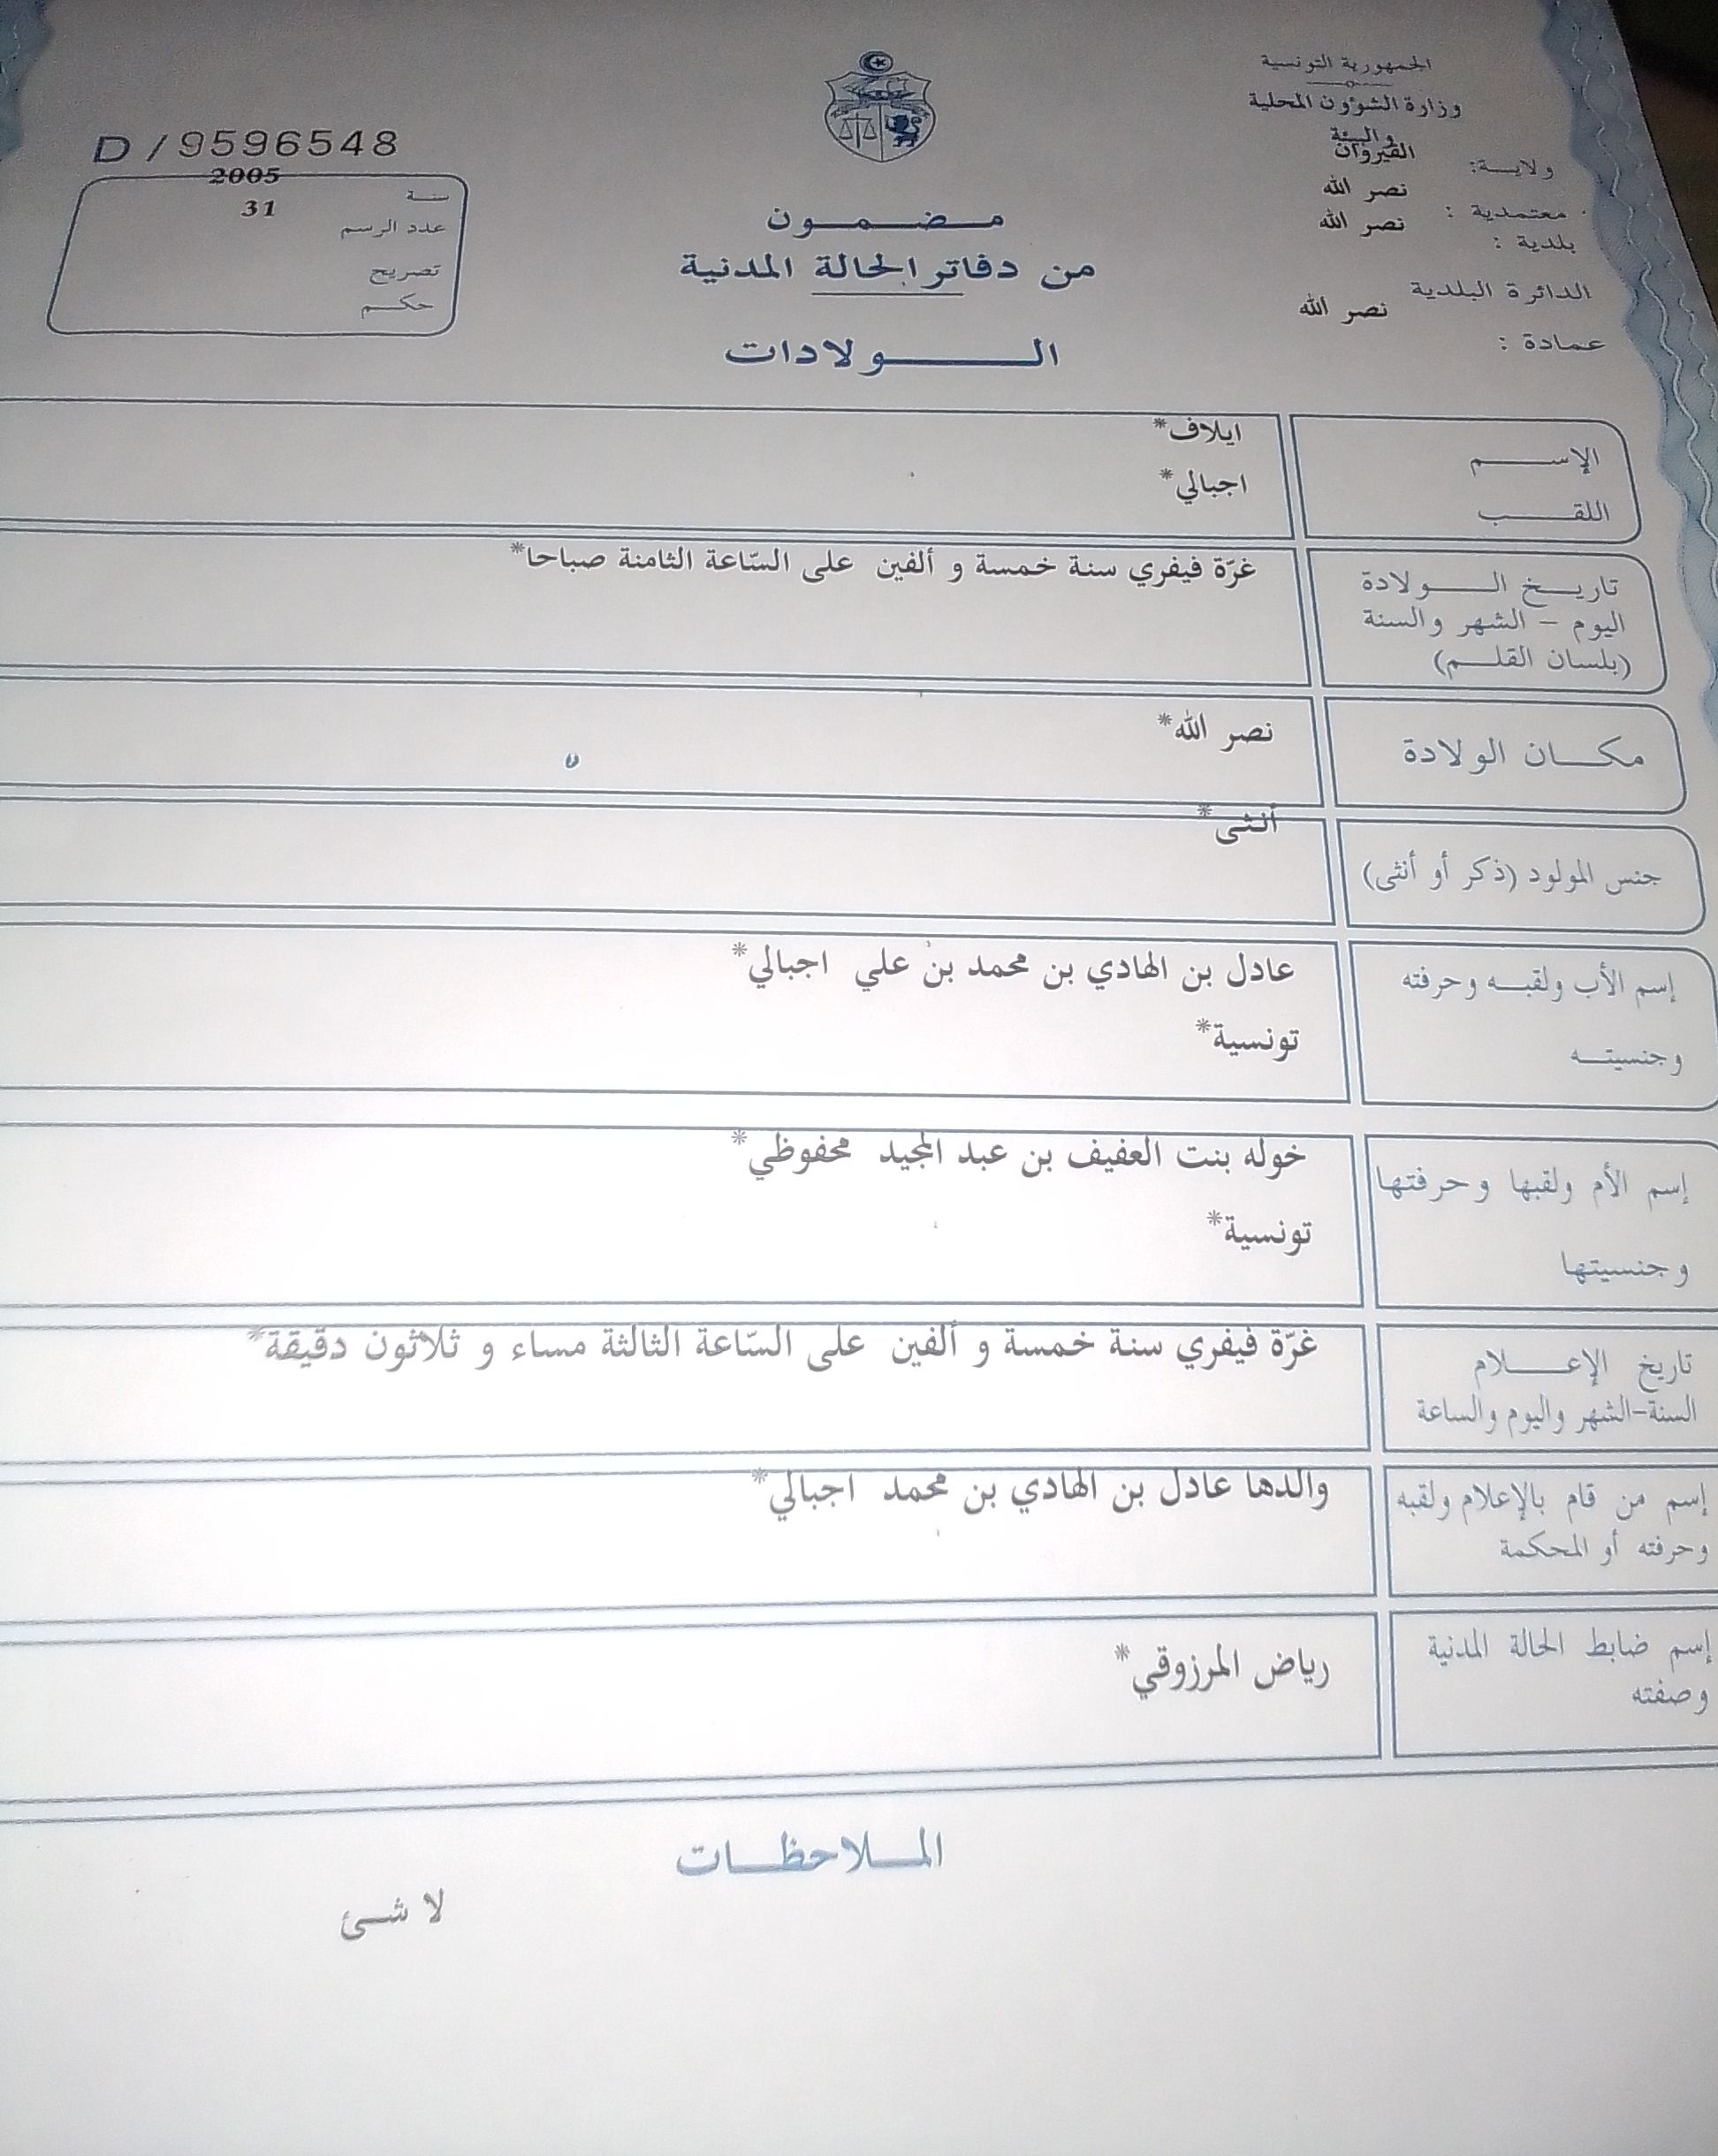 الجمهورية التونسية
وزارة الشؤون المحلية
والبيئة
ولاية: القيروان
معتمدية : نصر الله
بلدية : نصر الله
الدائرة البلدية
عمادة : نصر الله
مضمون
من دفاتر الحالة المدنية
الولادات
D / 9596548
سنة 2005
عدد الرسم 31
تصريح
حكم
الإسم ايلاف*
اللقب اجبالي*
تاريخ الولادة غرّة فيفري سنة خمسة و ألفين على السّاعة الثامنة صباحا*
اليوم - الشهر والسنة
(بلسان القلم)
مكان الولادة نصر الله*
جنس المولود (ذكر أو أنثى) أنثى*
إسم الأب ولقبه وحرفته عادل بن الهادي بن محمد بن علي اجبالي*
وجنسيته تونسية*
إسم الأم ولقبها وحرفتها خوله بنت العفيف بن عبد المجيد محفوظي*
وجنسيتها تونسية*
تاريخ الإعلام غرّة فيفري سنة خمسة و ألفين على السّاعة الثالثة مساء و ثلاثون دقيقة*
السنة-الشهر واليوم والساعة
إسم من قام بالإعلام ولقبه والدها عادل بن الهادي بن محمد اجبالي*
وحرفته أو المحكمة
إسم ضابط الحالة المدنية رياض المرزوقي*
وصفته
الملاحظات
لا شئ